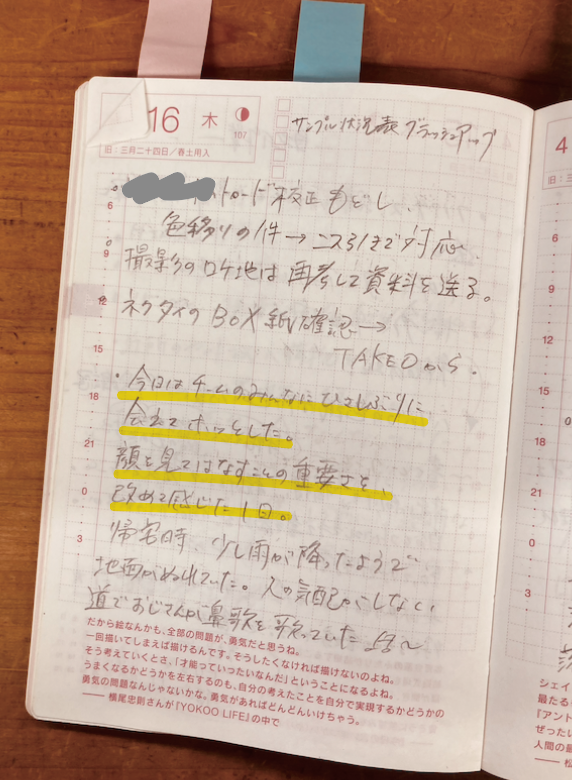 16 木
107
旧:三月二十四日/春土用入
サンプル状況表 ブラッシュアップ
校正もどし、
色移りの件→ニス引きで対応、
撮影のロケ地は再考して資料を送る。
・ネクタイのBOX紙確認→
TAKEOから。
・今日はチームのみんなにひさしぶりに
会えてホッとした。
顔を見てはなすことの重要さを、
改めて感じた1日。
帰宅時、少し雨が降ったようで
地面がぬれていた。人の気配がしない
道でおじさんが鼻歌を歌っていた
6
9
12
15
18
21
0
3
だから絵なんかも、全部の問題が、勇気だと思うね。
一回描いてしまえば描けるんです。そうしたくなければ描けないのよね。
そう考えていくとさ、「才能っていったいなんだ」ということになるよね。
うまくなるかどうかを左右するのも、自分の考えたことを自分で実現するかどうかの
勇気の問題なんじゃないかな。勇気があればどんどんいけちゃう。
——横尾忠則さんが『YOKOO LIFE』の中で
4
旧:三
6
9
12
15
18
21
0
3
シェイ
最たるも
『アント
ぜったい
人間の最